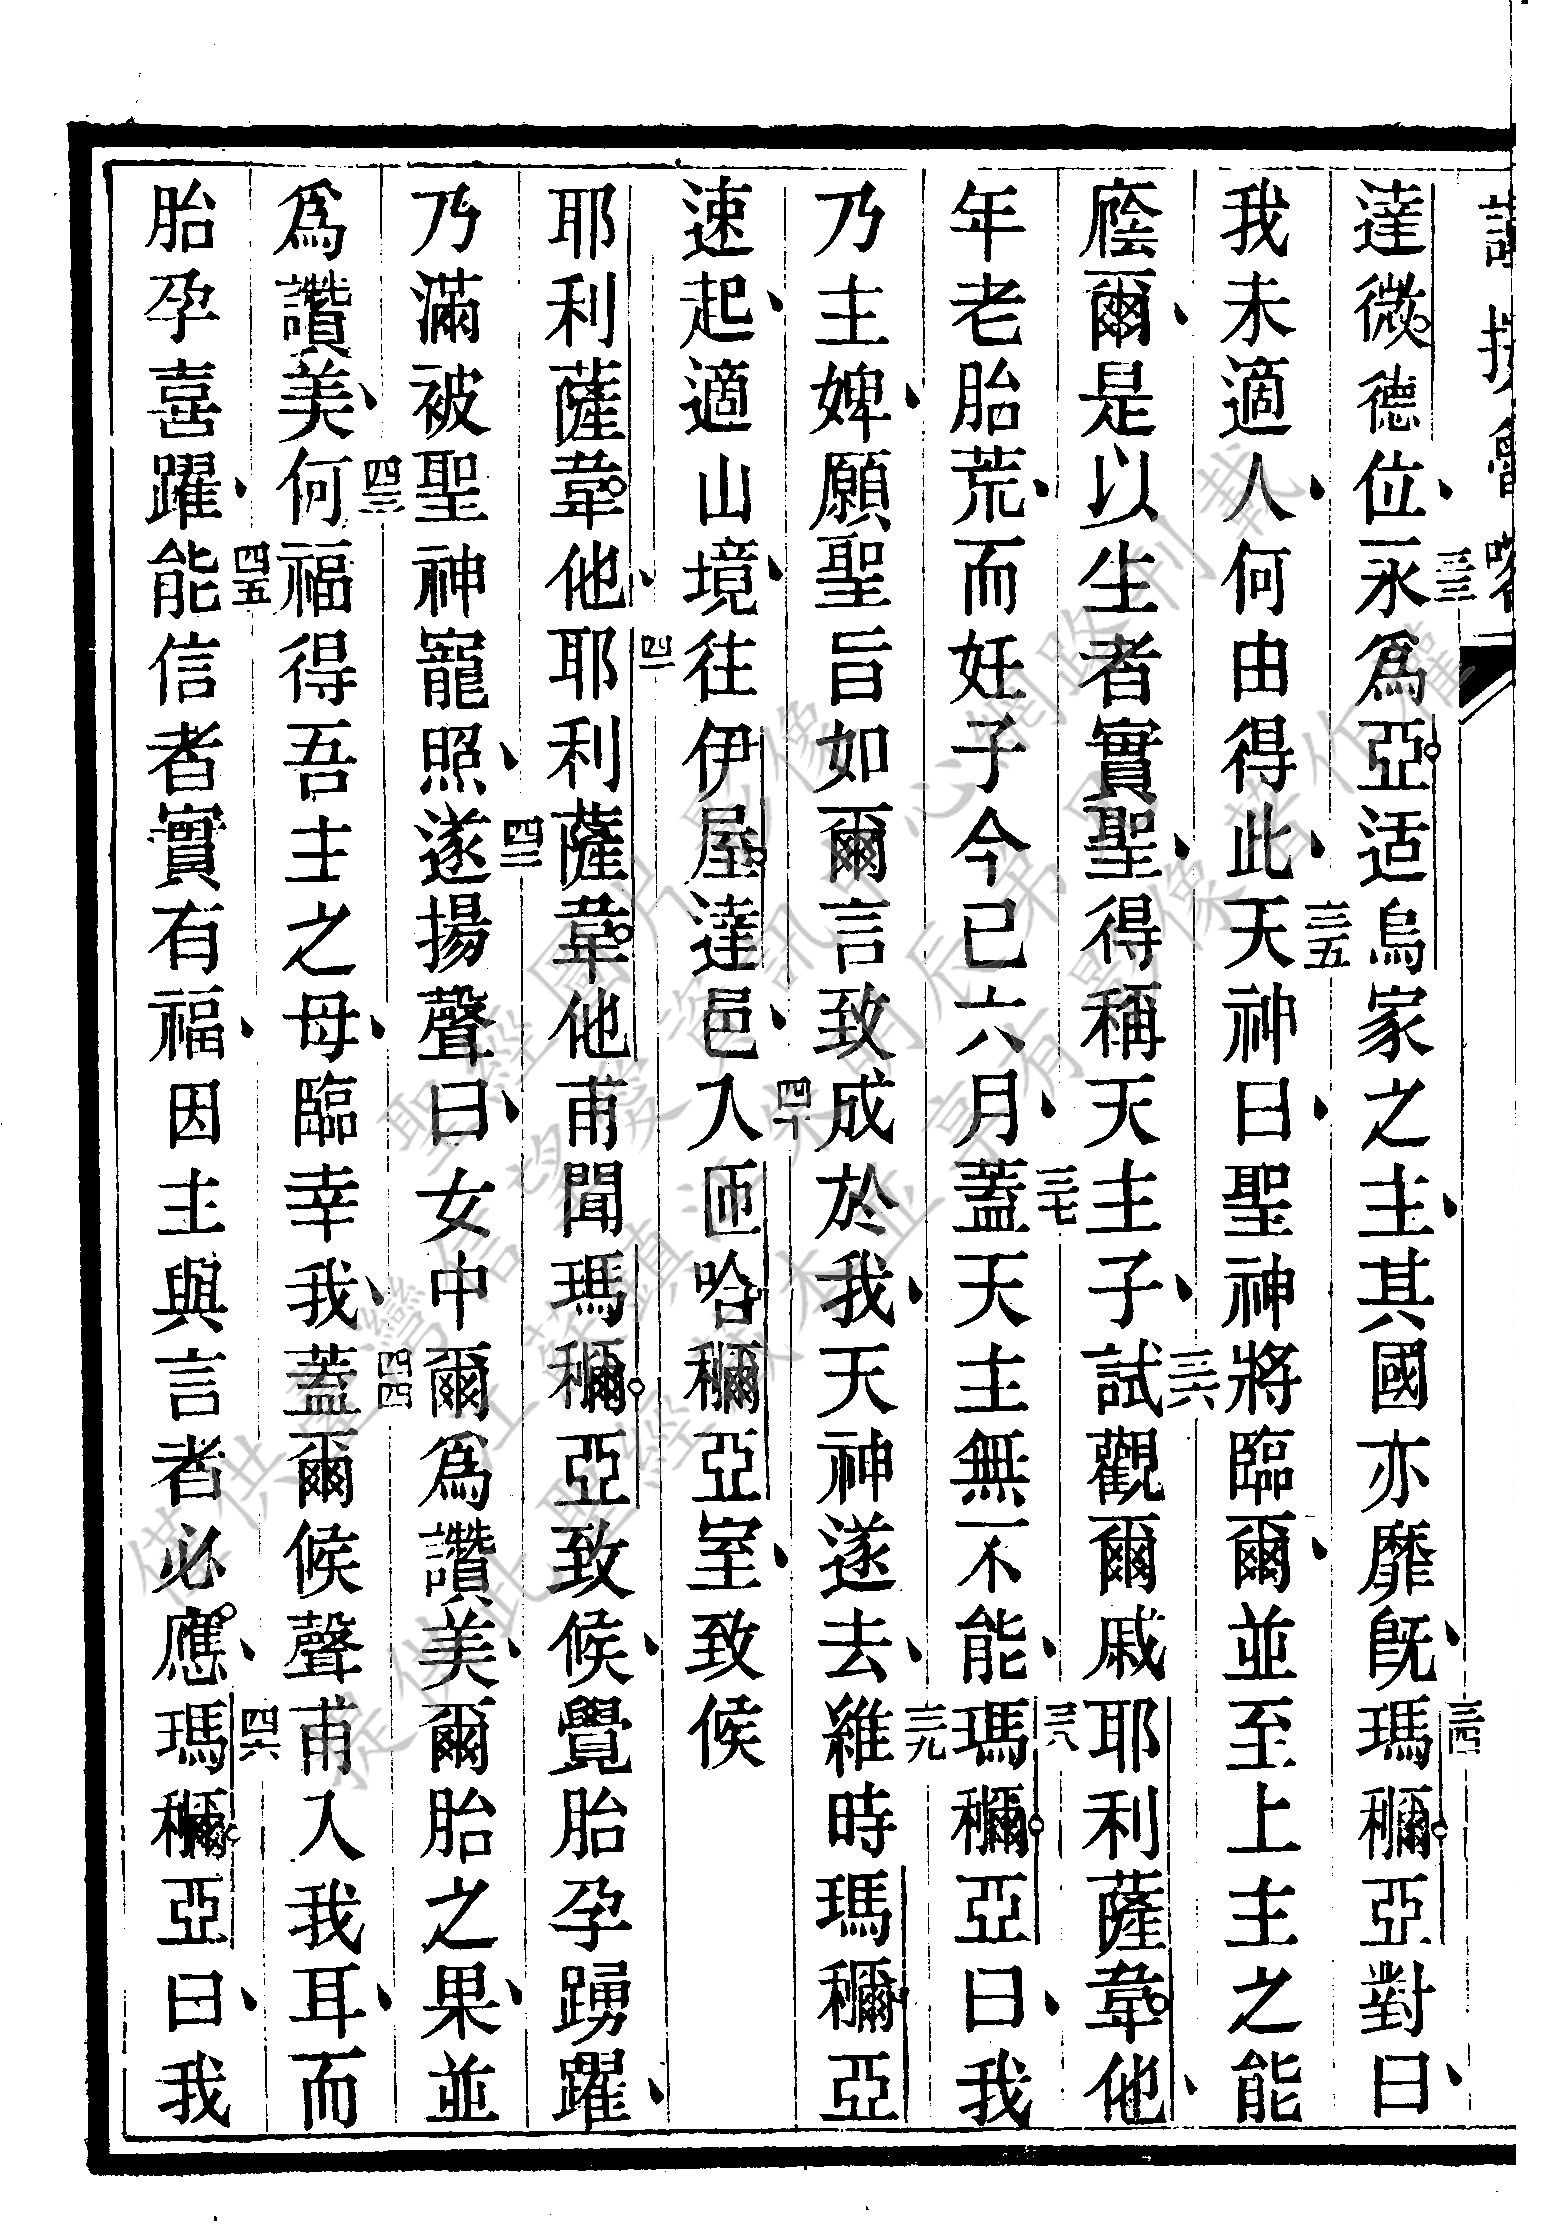 達微德位、三三永爲亞适烏家之主、其國亦靡旣、三四瑪穪亞對曰、
我未適人、何由得此、三五天神曰、聖神將臨爾、並至上主之能
廕爾、是以生者實聖、得稱天主子、三六試觀爾戚耶利薩韋他、
年老胎荒、而妊子今已六月、三七蓋天主無不能、三八瑪穪亞曰、我
乃主婢、願聖旨如爾言致成於我、天神遂去、三九維時瑪穪亞
速起、適山境、往伊屋達邑、四十入匝哈穪亞室、致候
耶利薩韋他、四一耶利薩韋他甫聞瑪穪亞致候、覺胎孕踴躍、
乃滿被聖神寵照、四二遂揚聲曰、女中爾爲讚美、爾胎之果、並
爲讚美、四三何福得吾主之母、臨幸我、四四蓋爾候聲甫入我耳、而
胎孕喜躍、四五能信者實有福、因主與言者必應、四六瑪穪亞曰、我